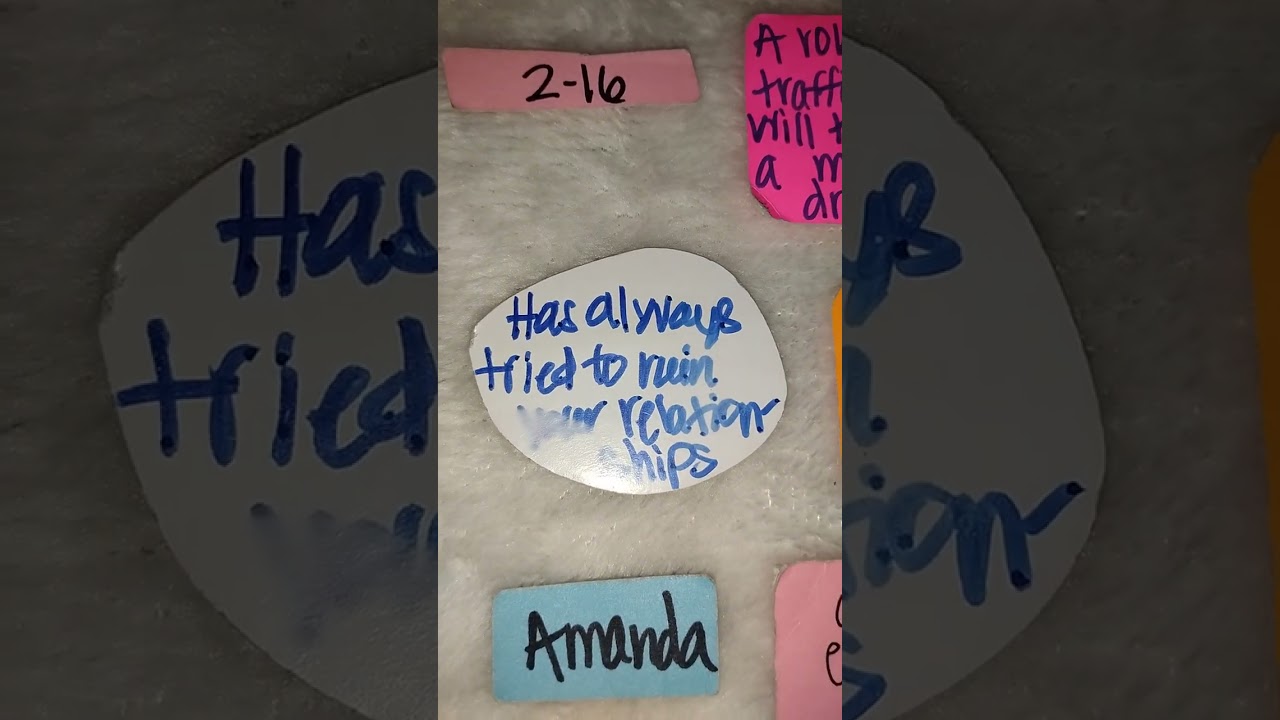 2-16
A rol
traffi
will t
a m
dr
Has always
tried to ruin
your relation-
hips
Amanda